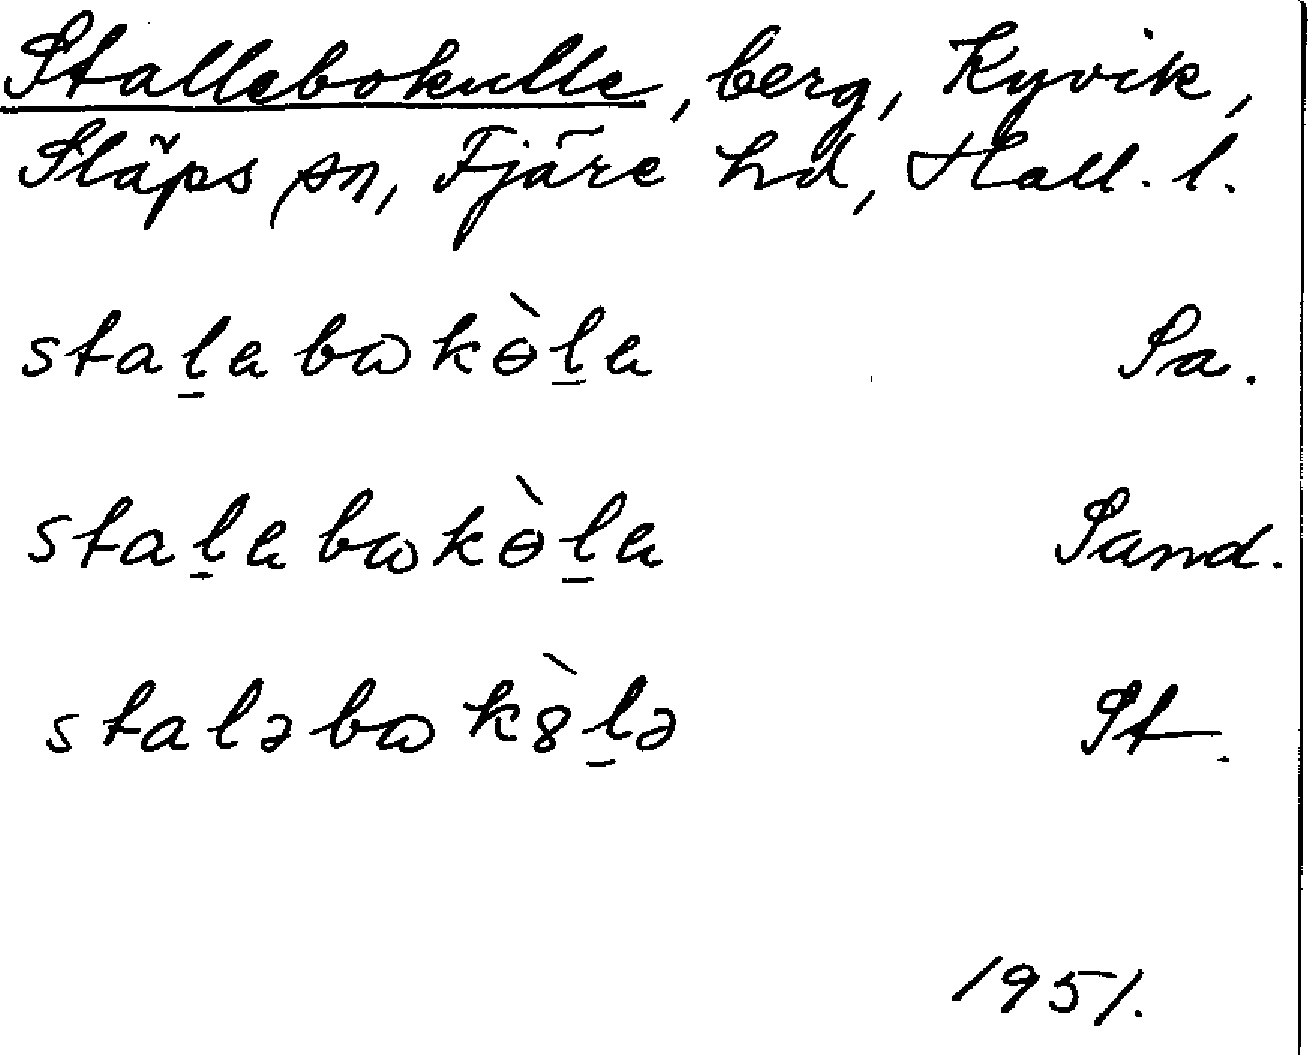 Stallebokulle, berg, Kyvik,
Släps sn, Fjäre hd, Hall. l.
stal̠ebωkɵ̀l̠e Sa.
stal̠ebωkɵ̀l̠e Sand.
staləbωk8̀l̠ə St.
1951.